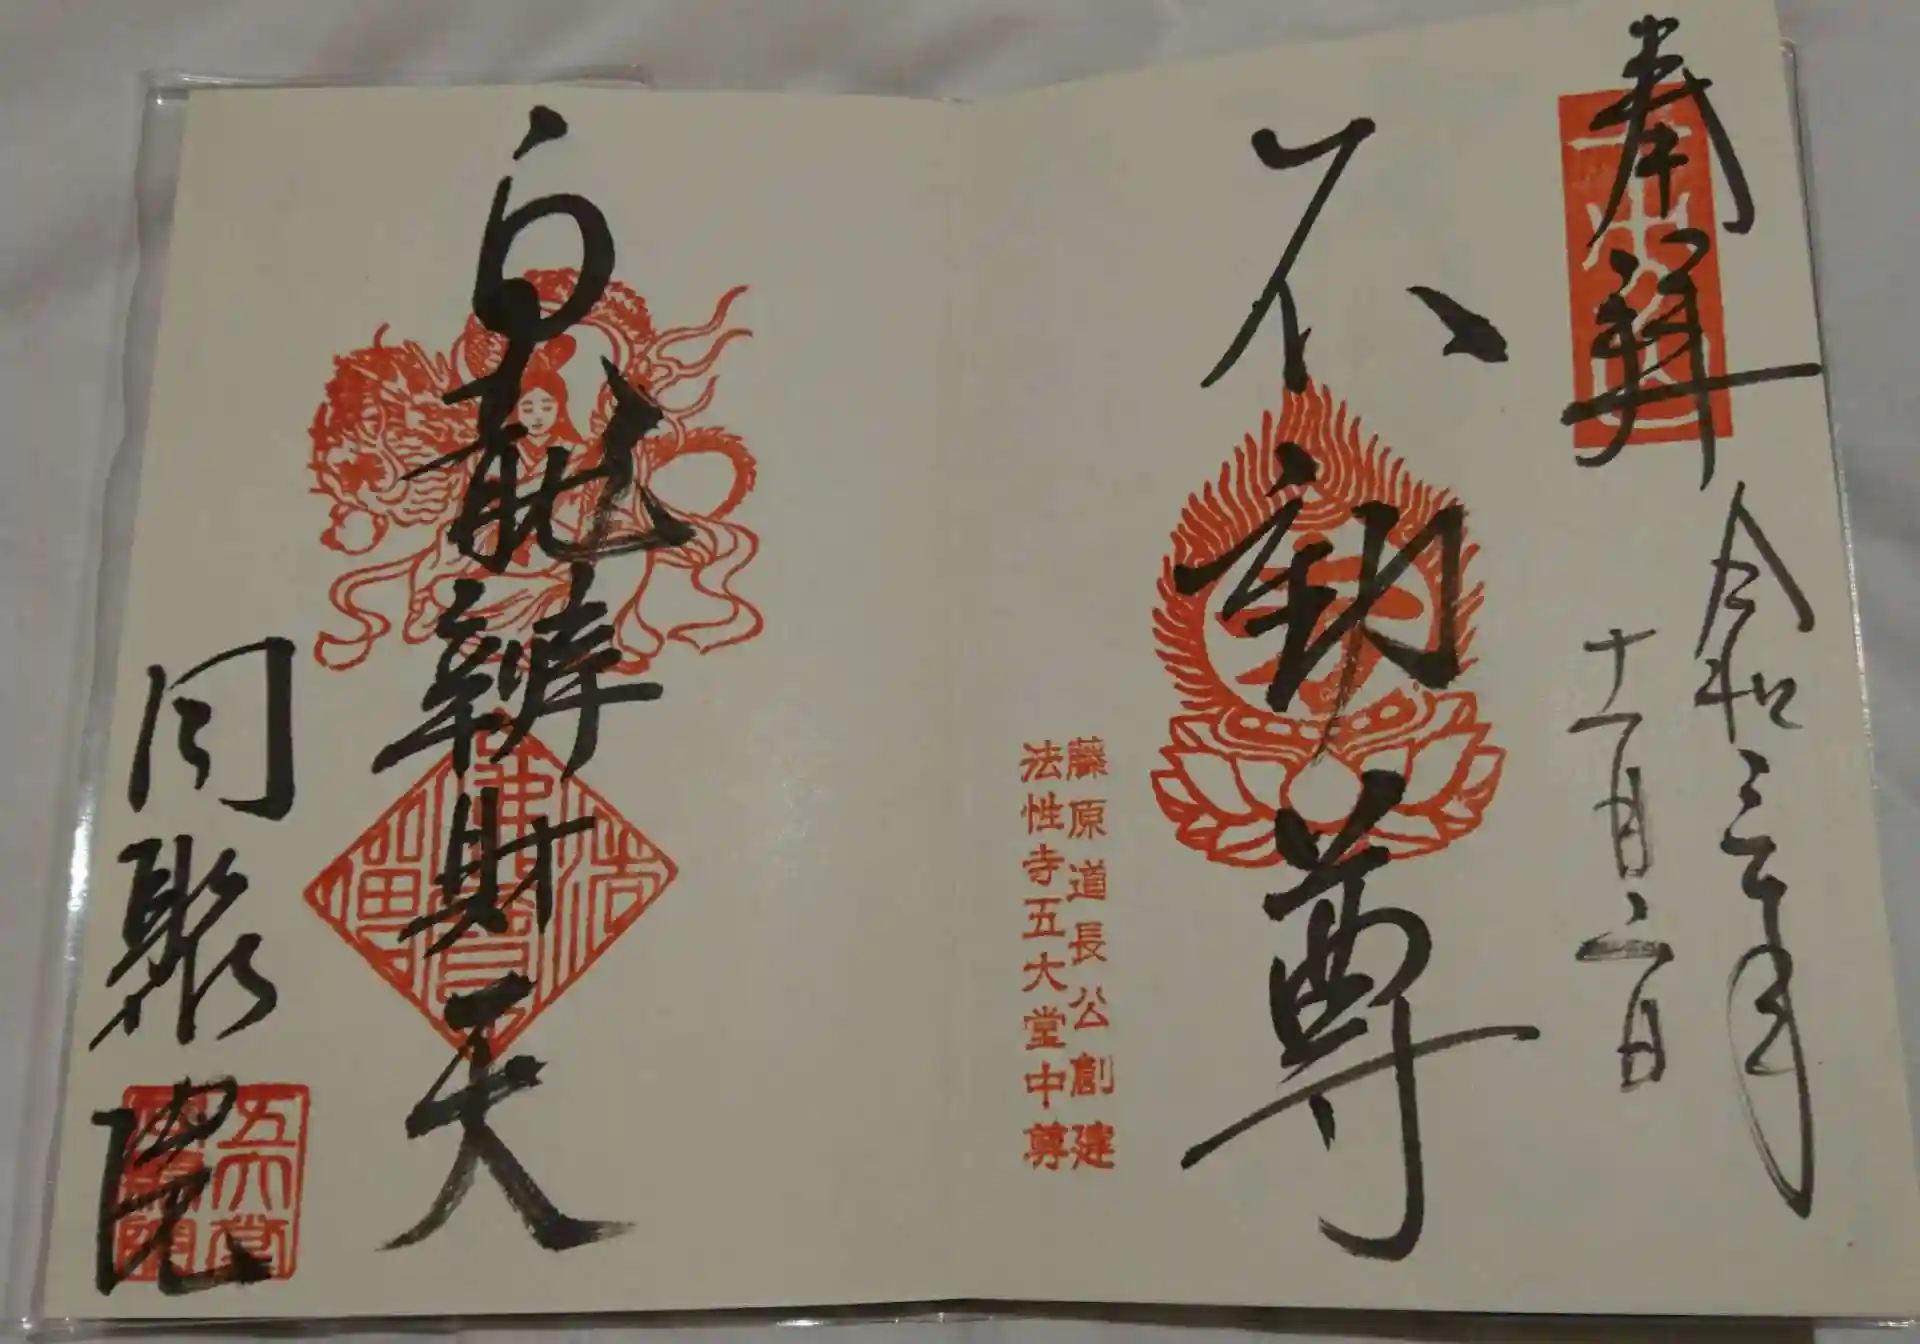 奉拝
令和三年
十一月二日
不動尊
藤原道長公創建
法性寺五大堂中尊
白龍辨財天
同聚院
五大堂